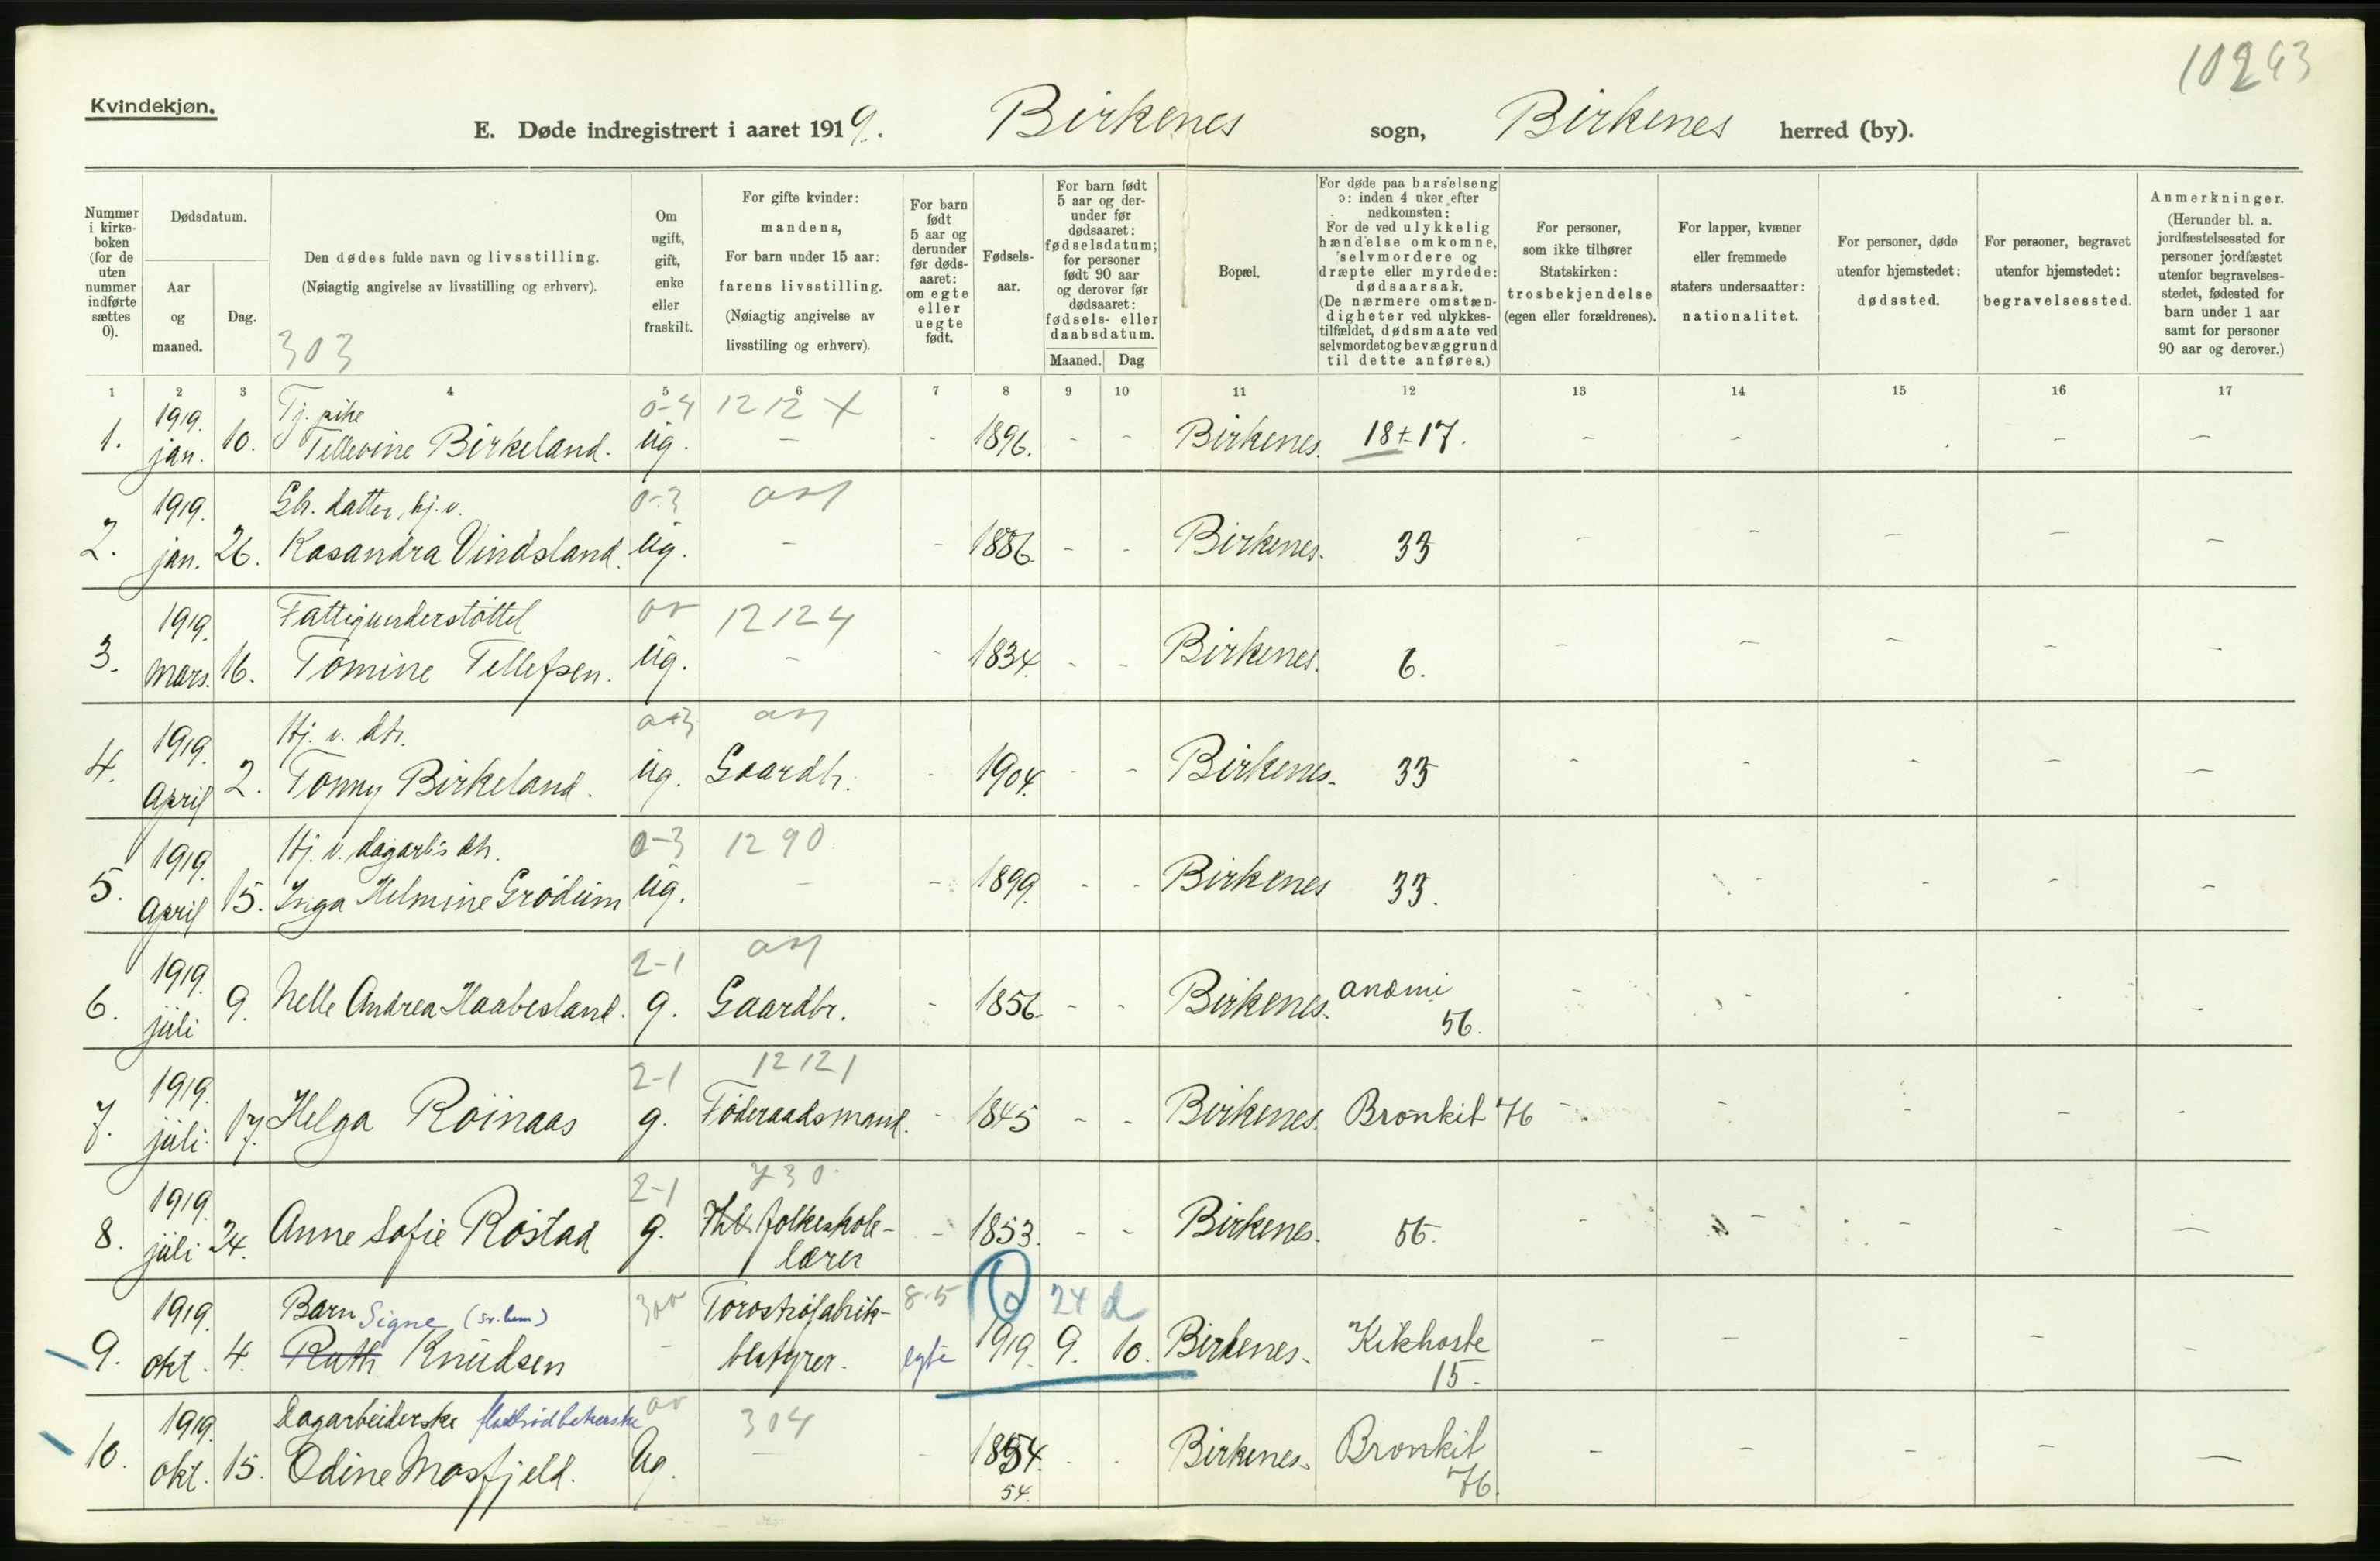 10243
Kvindekjøn.
E. Døde indregistrert i aaret 1919. Birkenes sogn, Birkenes herred (by).
Nummer i kirke-boken (for de uten nummer indførte sættes 0).
Dødsdatum.
Aar og maaned.
Dag.
Den dødes fulde navn og livsstilling.
(Nøiagtig angivelse av livsstilling og erhverv).
303
Om ugift, gift, enke eller fraskilt.
For gifte kvinder: mandens,
For barn under 15 aar: farens livsstilling.
(Nøiagtig angivelse av livsstiling og erhverv).
For barn født 5 aar og derunder før døds-aaret: om egte eller uegte født.
Fødsels-aar.
For barn født 5 aar og der-under før dødsaaret: fødselsdatum; for personer født 90 aar og derover før dødsaaret: fødsels- eller daabsdatum.
Maaned. Dag
Bopæl.
For døde paa barselseng ɔ: inden 4 uker efter nedkomsten:
For de ved ulykkelig hændelse omkomne, selvmordere og dræpte eller myrdede: dødsaarsak.
(De nærmere omstæn-digheter ved ulykkes-tilfældet, dødsmaate ved selvmordet og bevæggrund til dette anføres.)
For personer, som ikke tilhører Statskirken: trosbekjendelse (egen eller forældrenes).
For lapper, kvæner eller fremmede staters undersaatter: nationalitet.
For personer, døde utenfor hjemstedet: dødssted.
For personer, begravet utenfor hjemstedet: begravelsessted.
Anmerkninger.
(Herunder bl. a. jordfæstelsessted for personer jordfæstet utenfor begravelses-stedet, fødested for barn under 1 aar samt for personer 90 aar og derover.)
1 2 3 4 5 6 7 8 9 10 11 12 13 14 15 16 17
1919. Tj. pike 0-4 1212 X
1. jan. 10. Tellevine Birkeland. ug. - - 1896. - - Birkenes. 18+17. - - . - -
1919. Gb. datter, hj. v. 0-3
2. jan. 26. Kasandra Vindsland. ug. - - 1886. - - Birkenes. 33 - - - - -
1919. Fattigunderstøttet 12124
3. mars. 16. Tomine Tellefsen. ug. - - 1834. - - Birkenes. 6. - - - - -
1919. Hj. v. dtr.
4. April 2. Tonny Birkeland. ug. Gaardb. - 1904. - - Birkenes. 33 - - - - -
1919. Hj. v. dagarb's dtr. 0-3 1290
5. April 15. Inga Helmine Grødum ug. - - 1899. - - Birkenes 33. - - - - -
1919. 2-1
6. juli 9. Nelle Andrea Haabesland. g. Gaardbr. - 1856. - - Birkenes. anæmi 56. - - - - -
1919. 2-1 12121
7. juli. 17. Helga Röinaas g. Föderaadsmand. - 1845 - - Birkenes. Bronkit 76 - - - - -
1919. 2-1 730
8. juli 24. Anne Sofie Røstad g. folkeskole-lærer - 1853. - - Birkenes. 55. - - - - -
1919. Barn Signe 8-5 24 d
9. okt. 4. Ruth Knudsen - Torvströfabrik-bestyrer. egte 1919. 9. 10. Birkenes. Kikhoste 15. - - - - -
1919. Dagarbeiderske flatbrødbakerske 304
10. okt. 15. Odine Mosfjeld. Ug. - - 1854. 54. Birkenes. Bronkit 76. - - - - -